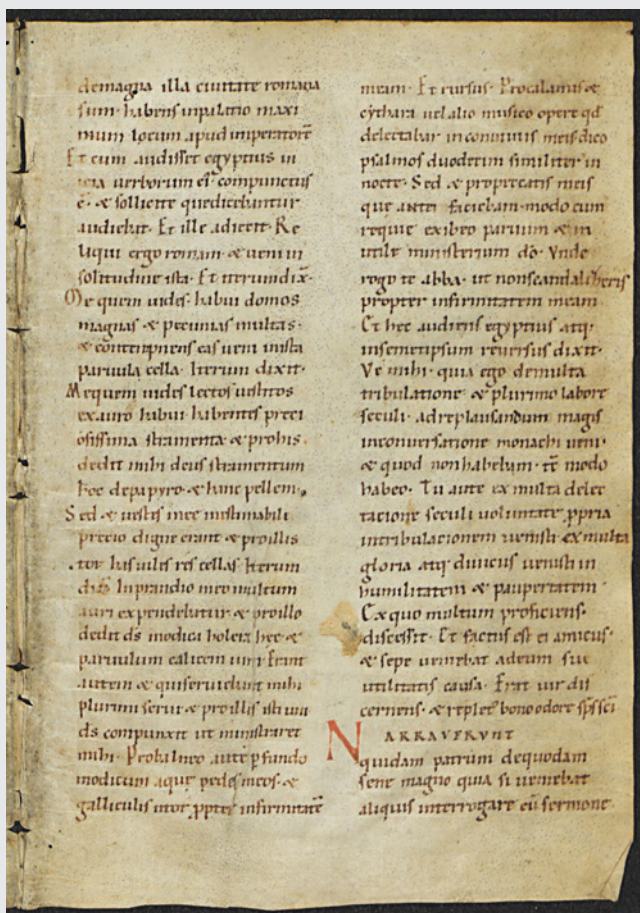 demagna illa ciuitate romana
sum· habens inpalatio maxi
mum locum apud imperatorē
Et cum audisset egyptius in
uerborum ei᷒ compunctus
ē· & sollicite quedicebantur
audiebat· Et ille adiecit· Re
liqui ergo romam· & ueni in
solitudine ista· Et iterum dix̄·
Me quem uides· habui domos
magnas & pecunias multas·
& contempnens eas ueni inista
paruula cella· Iterum dixit·
Mequem uides lectos uestitos
exauro habui habentes preci
osissima stramenta & prohis
dedit mihi deus stramentum
hoc depapyro· & hanc pellem·
Sed & uestes mee inestimabili
precio digne erant & proillis
tor has uiles res cellas· Iterum
Inprandio meo multum
auri expendebatur & proillo
dedit ds modica holera hec &
paruulum calicem uini· Erant
autem & quiseruiebant mihi
plurimi serui & proillis istum
ds compunxit ut ministraret
mihi· Probalneo aute pfundo
modicum aque pedes meos· &
galliculis utor ꝓpter infirmitatē
meam· Et rursus· Procalamis &
cythara uel alio musico opere qd
delectabar inconuiuiis meis dico
psalmos duodecim similiter in
nocte· Sed & proprecatis meis
que antea faciebam· modo cum
requie exibeo paruum & in
utile ministerium dō· Unde
rogo te abba· ut nonscandalizeris
propter infirmitatem meam·
Et hec audiens egyptius atq·
insemetipsum reuersus dixit·
Ve mihi· quia ego demulta
tribulatione & plurimo labore
seculi· adreplausandum magis
inconuersatione monachi ueni·
& quod nonhabebam· tē modo
habeo· Tu aute ex multa delec
tacione seculi uoluntate ꝓpria
intribulacionem uenisti· ex multa
gloria atq· diuiciis uenisti in
humilitatem & paupertatem·
Ex quo multum proficiens·
discessit· Et factus est ei amicus·
& sepe ueniebat adeum sue
utilitatis causa· Erat uir dis
cernens· & replet᷒ bono odore sps sci
NARRAVERUNT
quidam patrum dequodam
sene magno quia si ueniebat
aliquis interrogare eū sermone